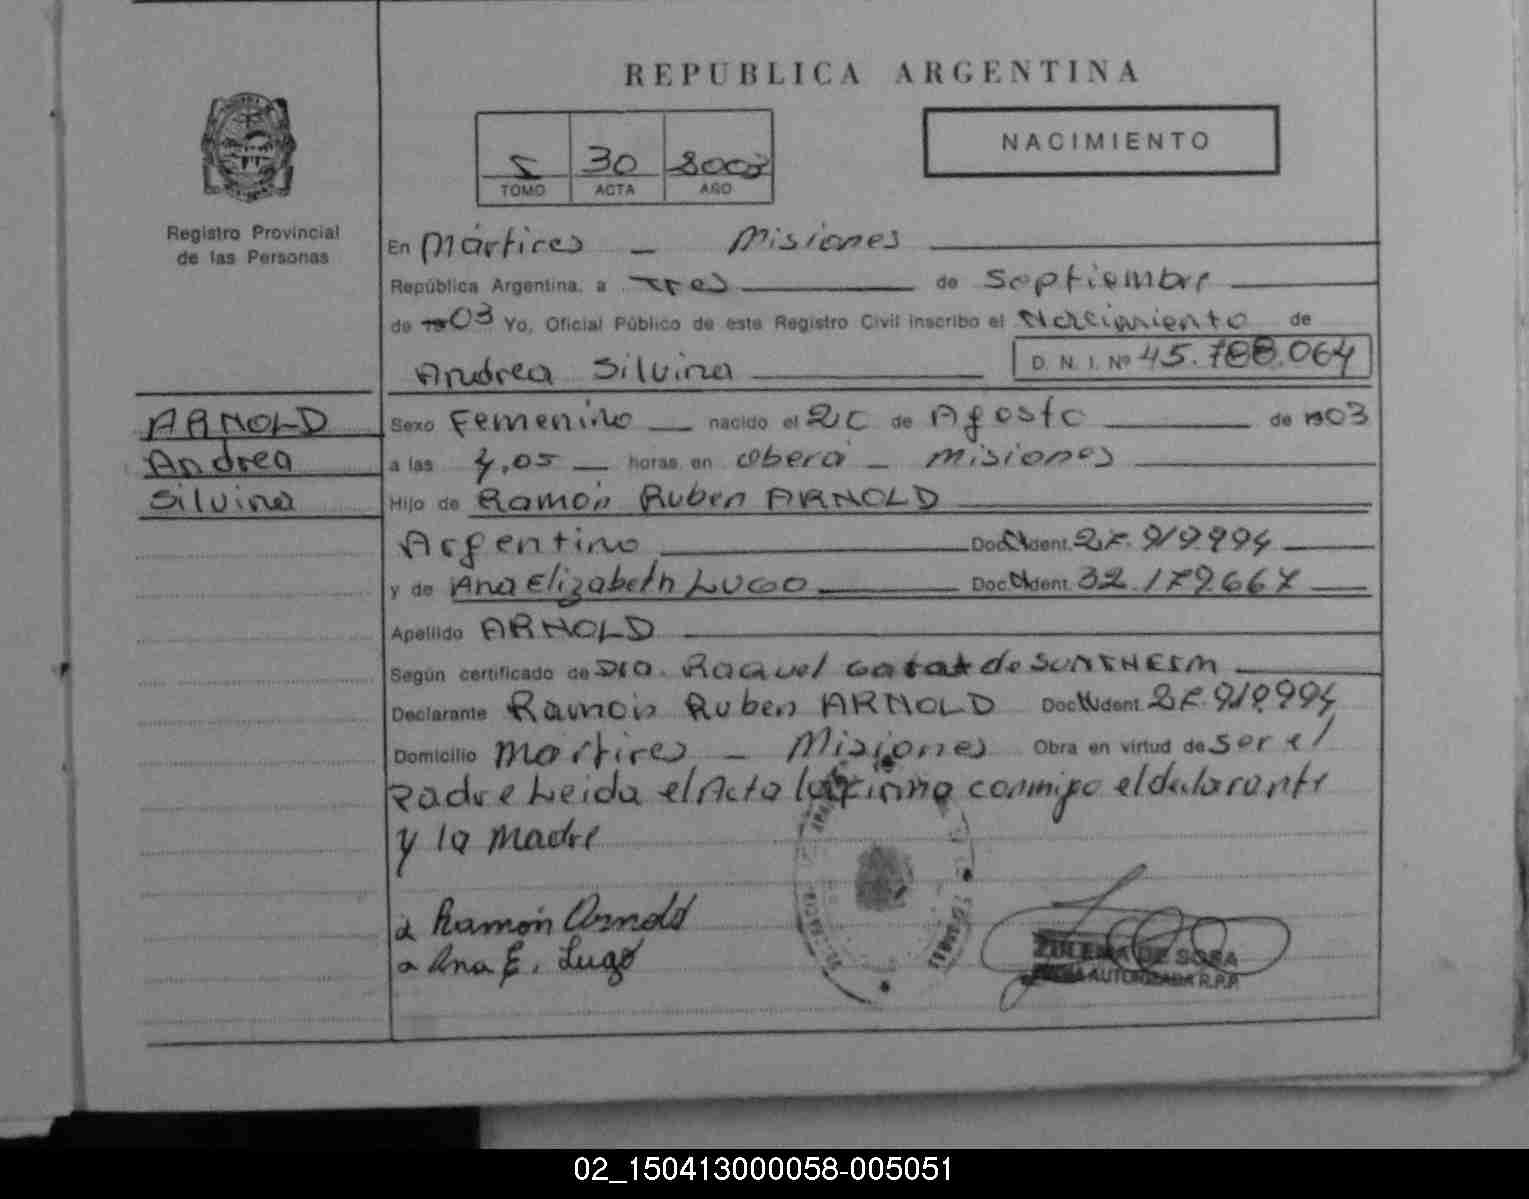 REPUBLICA ARGENTINA
NACIMIENTO
30
TOMO ACTA AÑO
Registro Provincial
de las Personas
En Mártires - Misiones
República Argentina, a Tres de Septiembre
de 1903 Yo, Oficial Público de este Registro Civil inscribo el Nacimiento de
Andrea Silvina D. N. I. Nº 45.788.064
ARNOLD
Andrea
Silvina
Sexo Femenino nacido el de Agosto de 1903
a las horas, en Oberá - Misiones
Hijo de Ramón Ruben ARNOLD
Argentino Doc. Ident.
y de Ana Elizabeth LUGO Doc. Ident. 32.179.667
Apellido ARNOLD
Según certificado de Dra. Raquel de
Declarante Ramón Ruben ARNOLD Doc. Ident.
Domicilio Martires - Misiones Obra en virtud de ser el
padre Leida el Acta la firma conmigo el declarante
y la Madre
Ramón Arnold
Ana E. Lugo
ZULEMA DE SOSA
AUTORIZADA R.P.P.
02_150413000058-005051